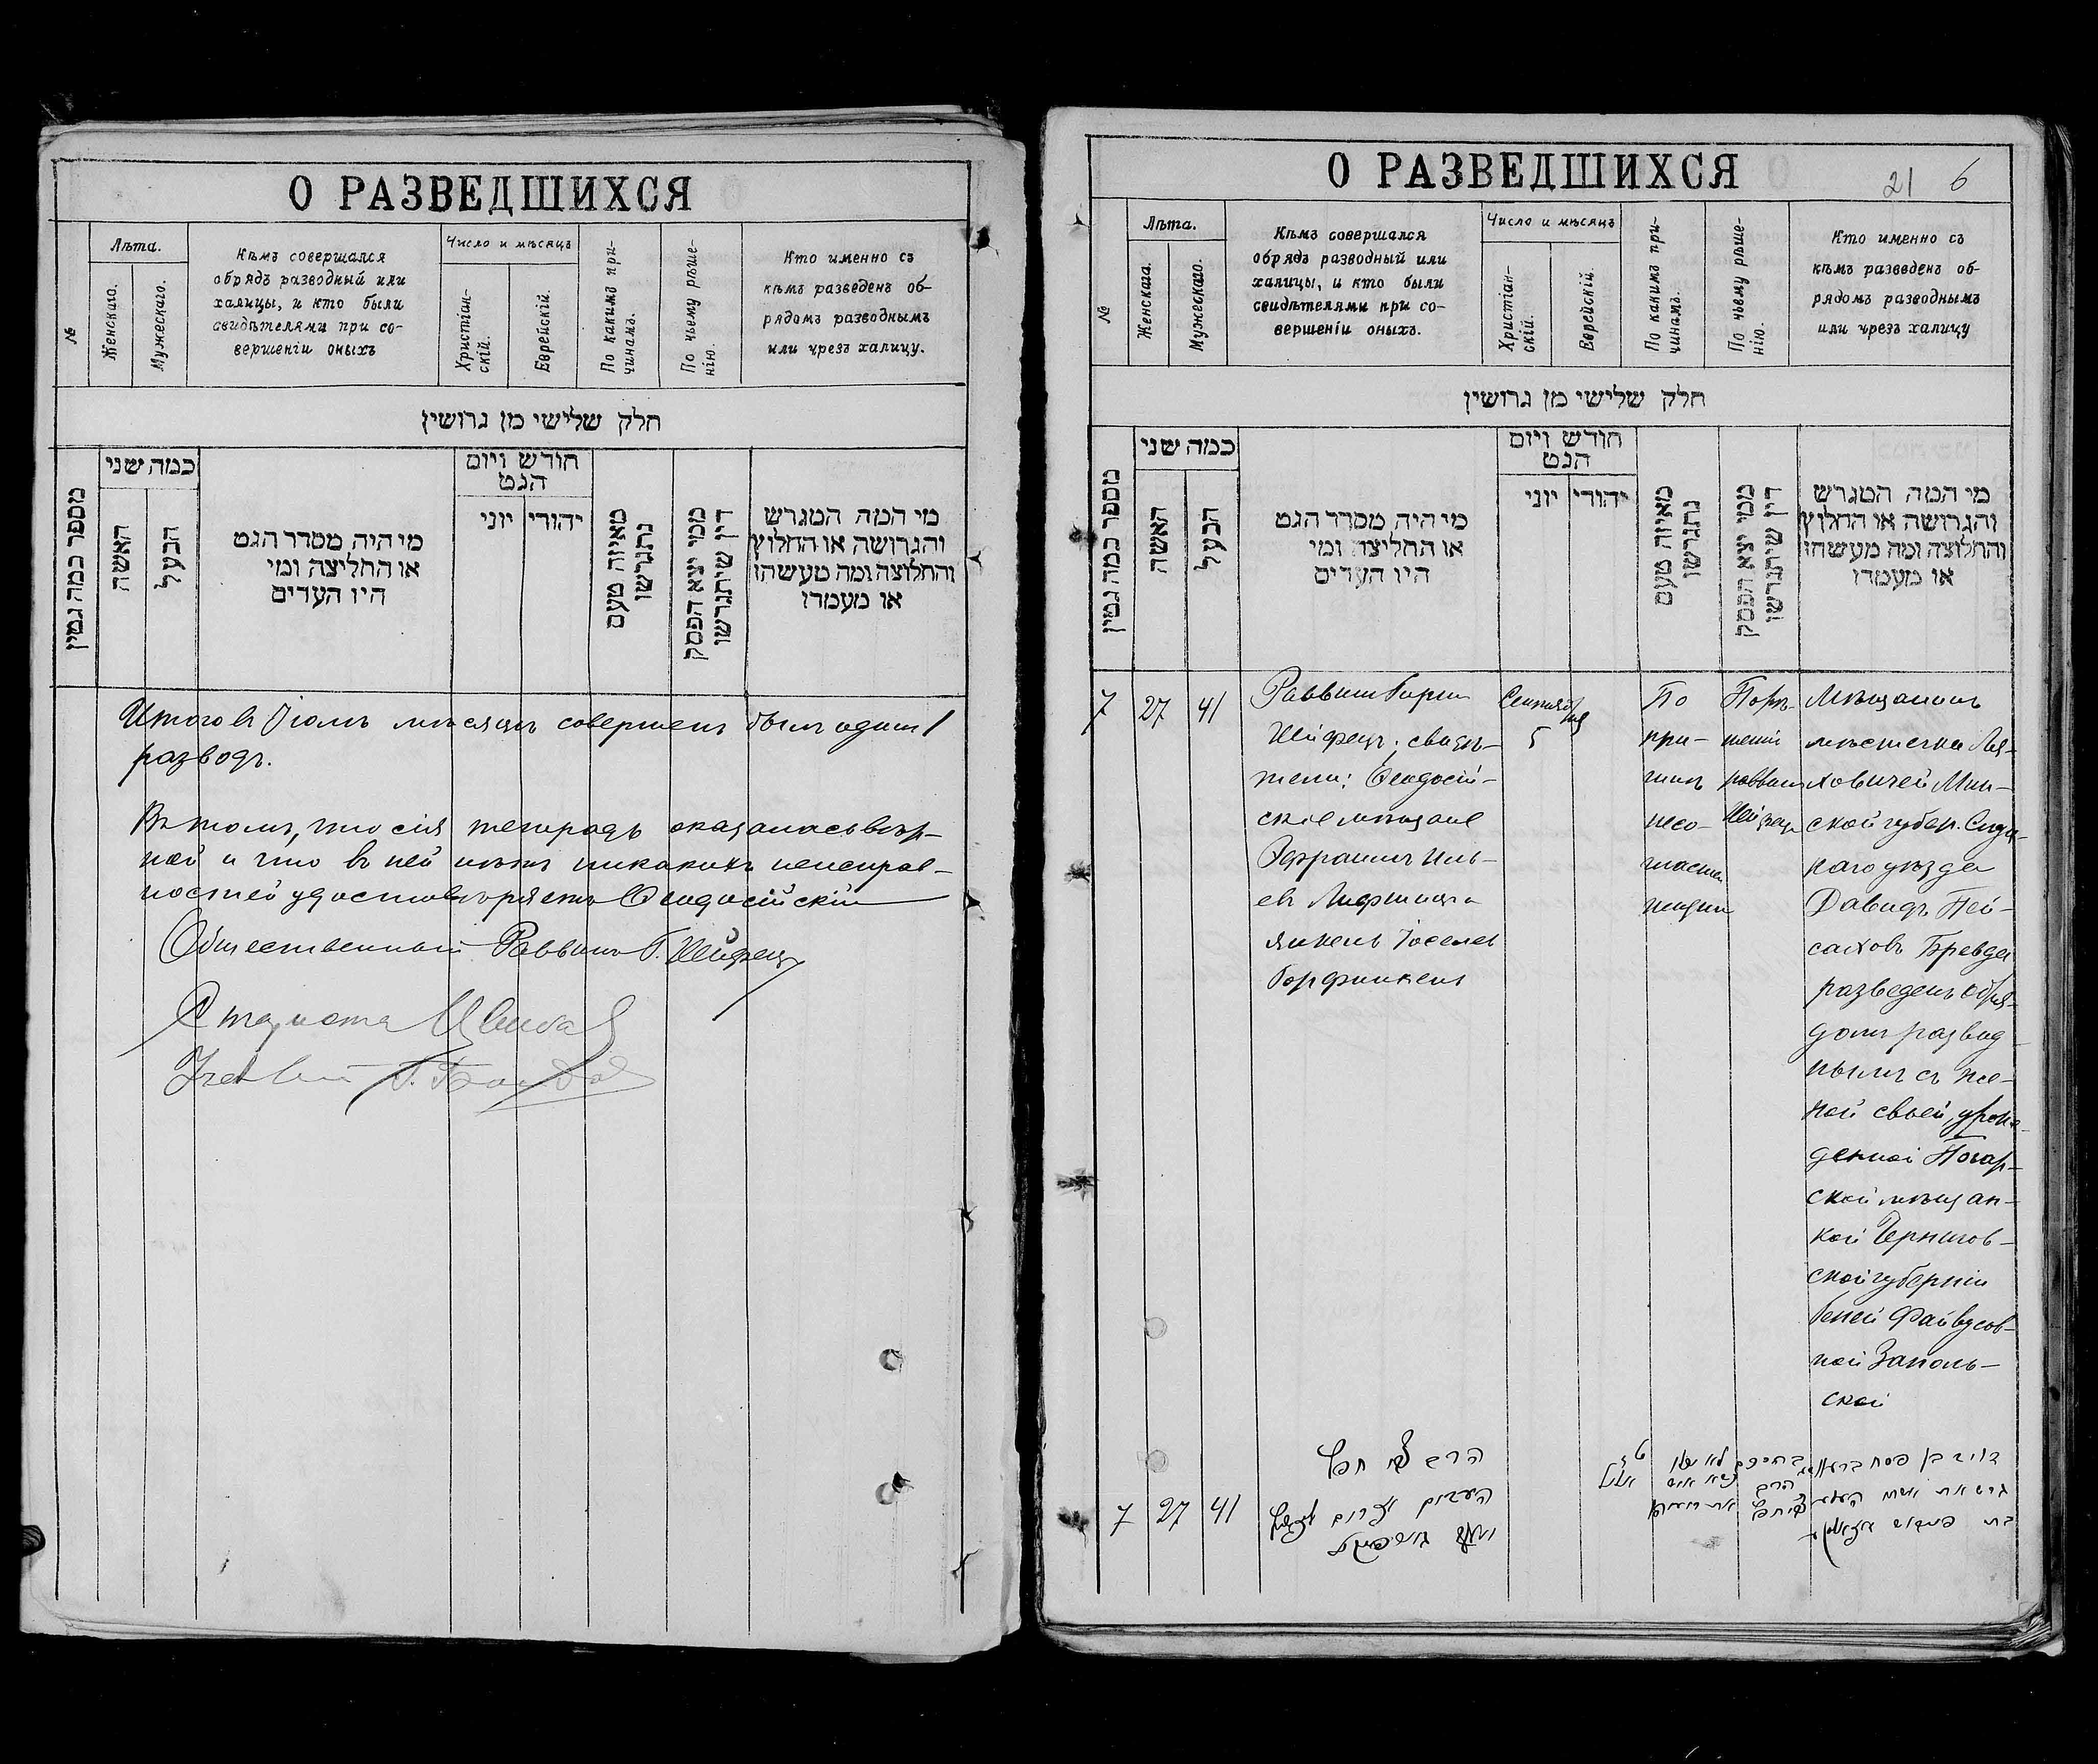 О РАЗВЕДШИХСЯ
№
Лѣта.
Женскаго.
Мужескаго.
Кѣмъ совершался
обрядъ разводный или
халицы, и кто были
свидѣтелями при со-
вершеніи оныхъ
Число и мѣсяцъ
Христіан-
скій.
Еврейскій.
По какимъ при-
чинамъ.
По чьему рѣше-
нію.
Кто именно съ
кѣмъ разведенъ об-
рядомъ разводнымъ
или чрезъ халицу.
חלק שלישי מן גרושין
מספר כמה גטין
כמה שני
האשה
הבעל
מי היה מסדר הגט
או החליצה ומי
היו העדים
חודש ויום
הגט
יוני
יהודי
מאיזה טעם
נתגרשו
ממי יצא הפסק
דין שיתגרשו
מי המה המגרש
והגרושה או החלוץ
והחלוצה ומה מעשהו
או מעמדו
Итого въ Іюлѣ мѣсяцѣ совершенъ былъ одинъ 1
разводъ.
Въ томъ, что сія тетрадь оказалась вѣр-
ной и что въ ней нѣтъ никакихъ неисправ-
ностей удостовѣряетъ Ѳеодосійскій
Общественный Раввинъ Г. Шейфецъ
Староста
О РАЗВЕДШИХСЯ
21 6
№
Лѣта.
Женскаго.
Мужескаго.
Кѣмъ совершался
обрядъ разводный или
халицы, и кто были
свидѣтелями при со-
вершеніи оныхъ.
Число и мѣсяцъ
Христіан-
скій.
Еврейскій.
По какимъ при-
чинамъ.
По чьему рѣше-
нію.
Кто именно съ
кѣмъ разведенъ об-
рядомъ разводнымъ
или чрезъ халицу
חלק שלישי מן גרושין
מספר כמה גטין
כמה שני
האשה
הבעל
מי היה מסדר הגט
או החליצה ומי
היו העדים
חודש ויום
הגט
יוני
יהודי
מאיזה טעם
נתגרשו
ממי יצא הפסק
דין שיתגרשו
מי המה המגרש
והגרושה או החלוץ
והחלוצה ומה מעשהו
או מעמדו
7
27
41
Раввинъ Гирш
Шейфецъ; свидѣ-
тели: Ѳеодосій-
скіе мѣщане
Эфраимъ Иль-
евъ Лифшицъ и
Янкель Іоселев
Горфинкель
Сентября
5
По
при-
чинѣ
несо-
гласія
жизни
По рѣ-
шенію
раввина
Шейфеца
Мѣщанинъ
мѣстечка Ля-
ховичей Мин-
ской губер. Слуц-
каго уѣзда
Давидъ Пей-
саховъ Бревда
разведенъ обря-
домъ развод-
нымъ съ же-
ной своей, урож-
денной Погар-
ской мѣщан-
кой Чернигов-
ской губерніи
Геней Файвусов-
ной Заполь-
ской
7 27 41
הרב צבי חפץ
אלול
דוד בן פסח